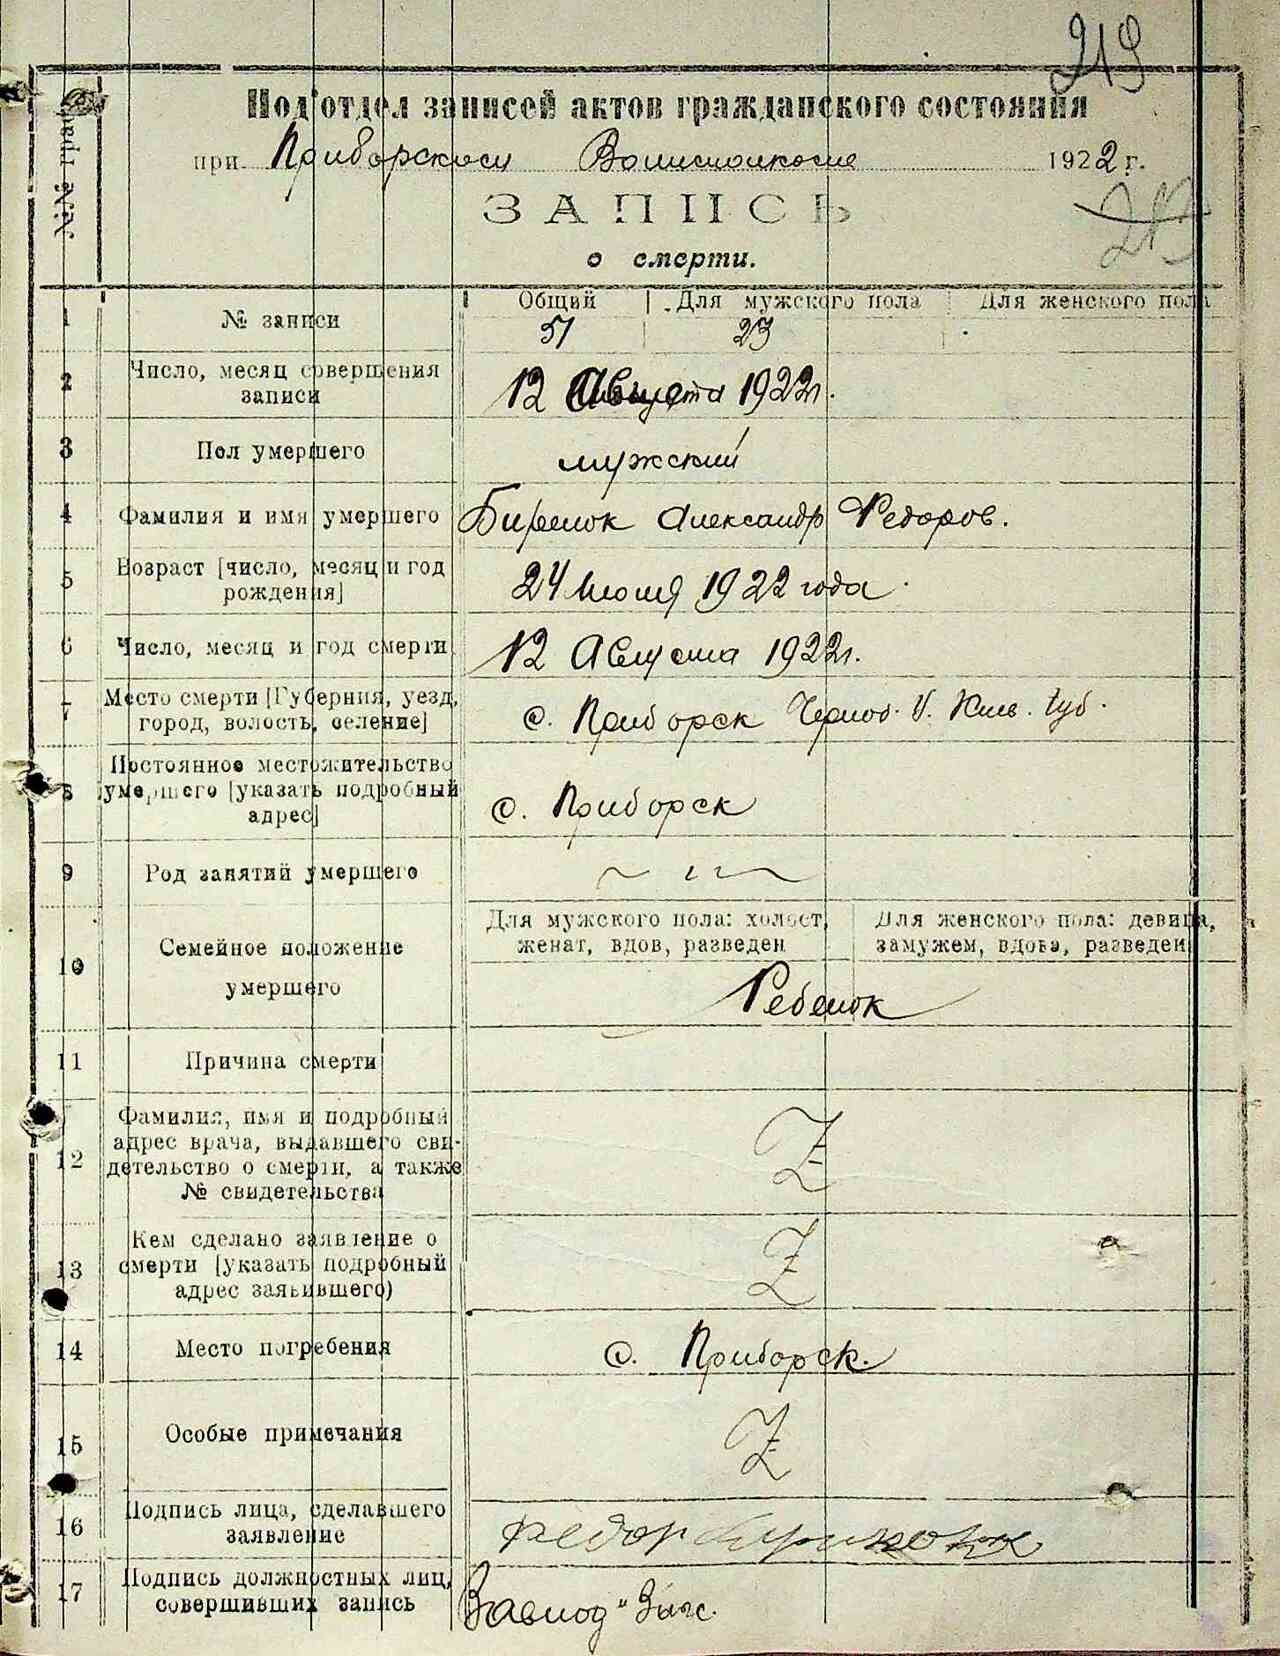 219
Под'отдел записей актов гражданского состояния
при Приборском Волисполкоме 1922 г.
213
ЗАПИСЬ
о смерти.
№№ граф
Общий Для мужского пола Для женского пола
1 № записи 51 23
2 Число, месяц совершения записи 12 Августа 1922 г.
3 Пол умершего мужский
4 Фамилия и имя умершего Александр Федоров.
5 Возраст [число, месяц и год рождения] 24 1922 года
6 Число, месяц и год смерти 12 Августа 1922 г.
7 Место смерти [Губерния, уезд, город, волость, селение] с. Приборск Черноб. У. Киев. губ.
8 Постоянное местожительство умершего [указать подробный адрес] с. Приборск
9 Род занятий умершего
10 Семейное положение умершего
Для мужского пола: холост, женат, вдов, разведен
Для женского пола: девица, замужем, вдова, разведен
Ребенок
11 Причина смерти
12 Фамилия, имя и подробный адрес врача, выдавшего свидетельство о смерти, а также № свидетельства Z
13 Кем сделано заявление о смерти [указать подробный адрес заявившего) Z
14 Место погребения с. Приборск.
15 Особые примечания Z
16 Подпись лица, сделавшего заявление Федор
17 Подпись должностных лиц, совершивших запись